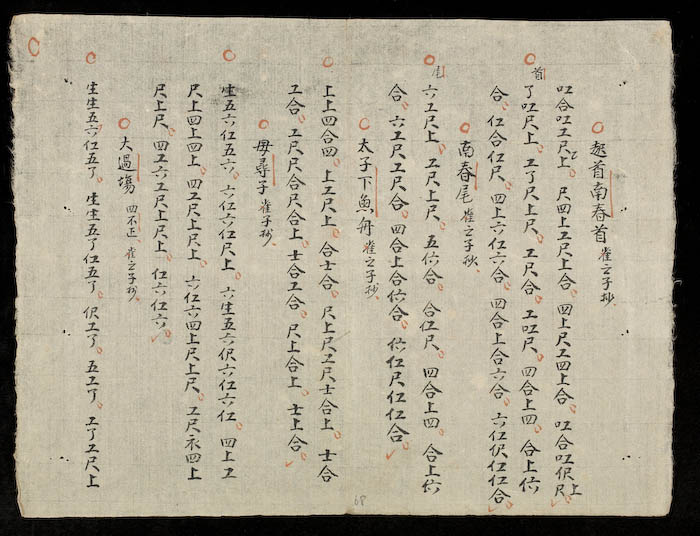 起首南春首 崔之子抄
𠮙合𠮙工尺上 尺四上工尺上合 四上尺工四上合 𠮙合𠮙伬尺上
首
了𠮙尺上 工了尺上尺 工尺合 工𠮙尺 四合上四 合上六
合 仜合仜尺 四上六仜六合 四合上合六合 六仜伬仜仜合
南春尾 崔之子抄
尾
六工尺上 工尺上尺 五六合 合仜尺 四合上四 合上六
合 六工尺工尺合 四合上合六合 六仜尺仜仜合
太子下魚舟 崔之子抄
上上四合四 上工尺上 合士合 尺上尺工尺士合上 士合
工合 工尺尺合尺合上 士合工合 尺上合上 士上合
母尋子 崔子抄
生五六仜五六 六仜六仜尺上 六生五六伬六仜六仜 四上工
尺上四上四上 四工尺上尺上 六仜六四上尺上尺 工尺 四上
尺上尺 四工六工尺上尺上 仜六仜六
大過場 四不正 崔之子抄
生生五六仜五了 生生五了仜五了 伬工了 五工了 工了工尺上
68